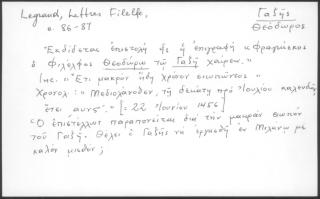 Legrand, Lettres Filelfe,
σ. 86-87
Γαζῆς
Θεόδωρος
"Ἐκδίδεται ἐπιστολὴ μὲ ἐπιγραφὴ "Φραγκίσκος
ὁ Φιλέλφος Θεοδώρῳ τῷ Γαζῇ χαίρειν."
Inc. "Ἔτι μακρὸν ἤδη χρόνον σιωπῶντος"
Χρονολ.: "Μεδιολάνοθεν, τῇ δεκάτῃ πρὸ Ἰουλίου καλενδῶν
ἔτει αυνςʹ." [= 22 Ἰουνίου 1456]
"Ὁ ἐπιστέλλων παραπονεῖται διὰ τὴν μακρὰν σιωπὴν
τοῦ Γαζῆ. Θέλει ὁ Γαζῆς νὰ ἐργασθῇ ἐν Μιλάνῳ μὲ
καλὸν μισθόν;